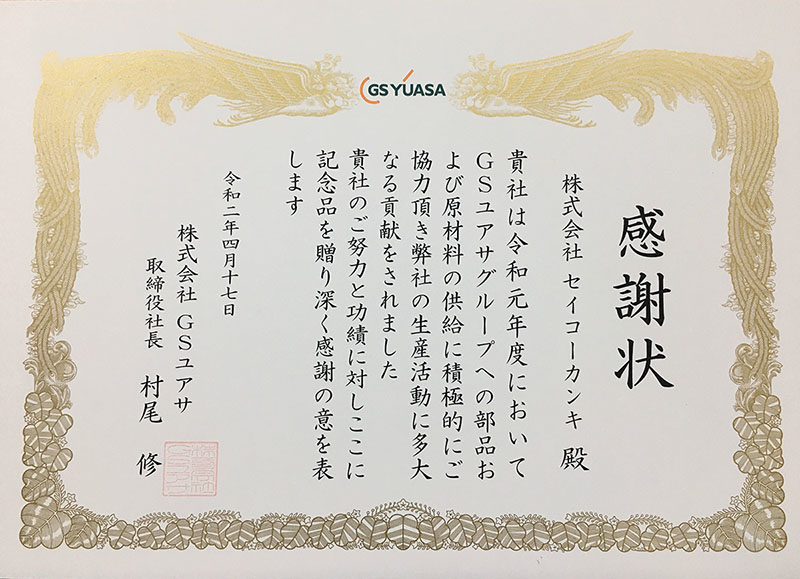 GS YUASA
感謝状
株式会社 セイコーカンキ 殿
貴社は令和元年度において
GSユアサグループへの部品お
よび原材料の供給に積極的にご
協力頂き弊社の生産活動に多大
なる貢献をされました
貴社のご努力と功績に対しここに
記念品を贈り深く感謝の意を表
します
令和二年四月十七日
株式会社 GSユアサ
取締役社長 村尾 修